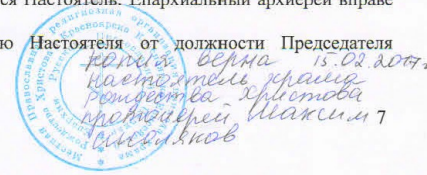 ся Настоятель. Епархиальный архиерей вправе
ю Настоятеля от должности Председателя
копия верна 15.02.2017г
настоятель храма
Рождества Христова
протоиерей Максим
7
Местная Православная религиозная организация